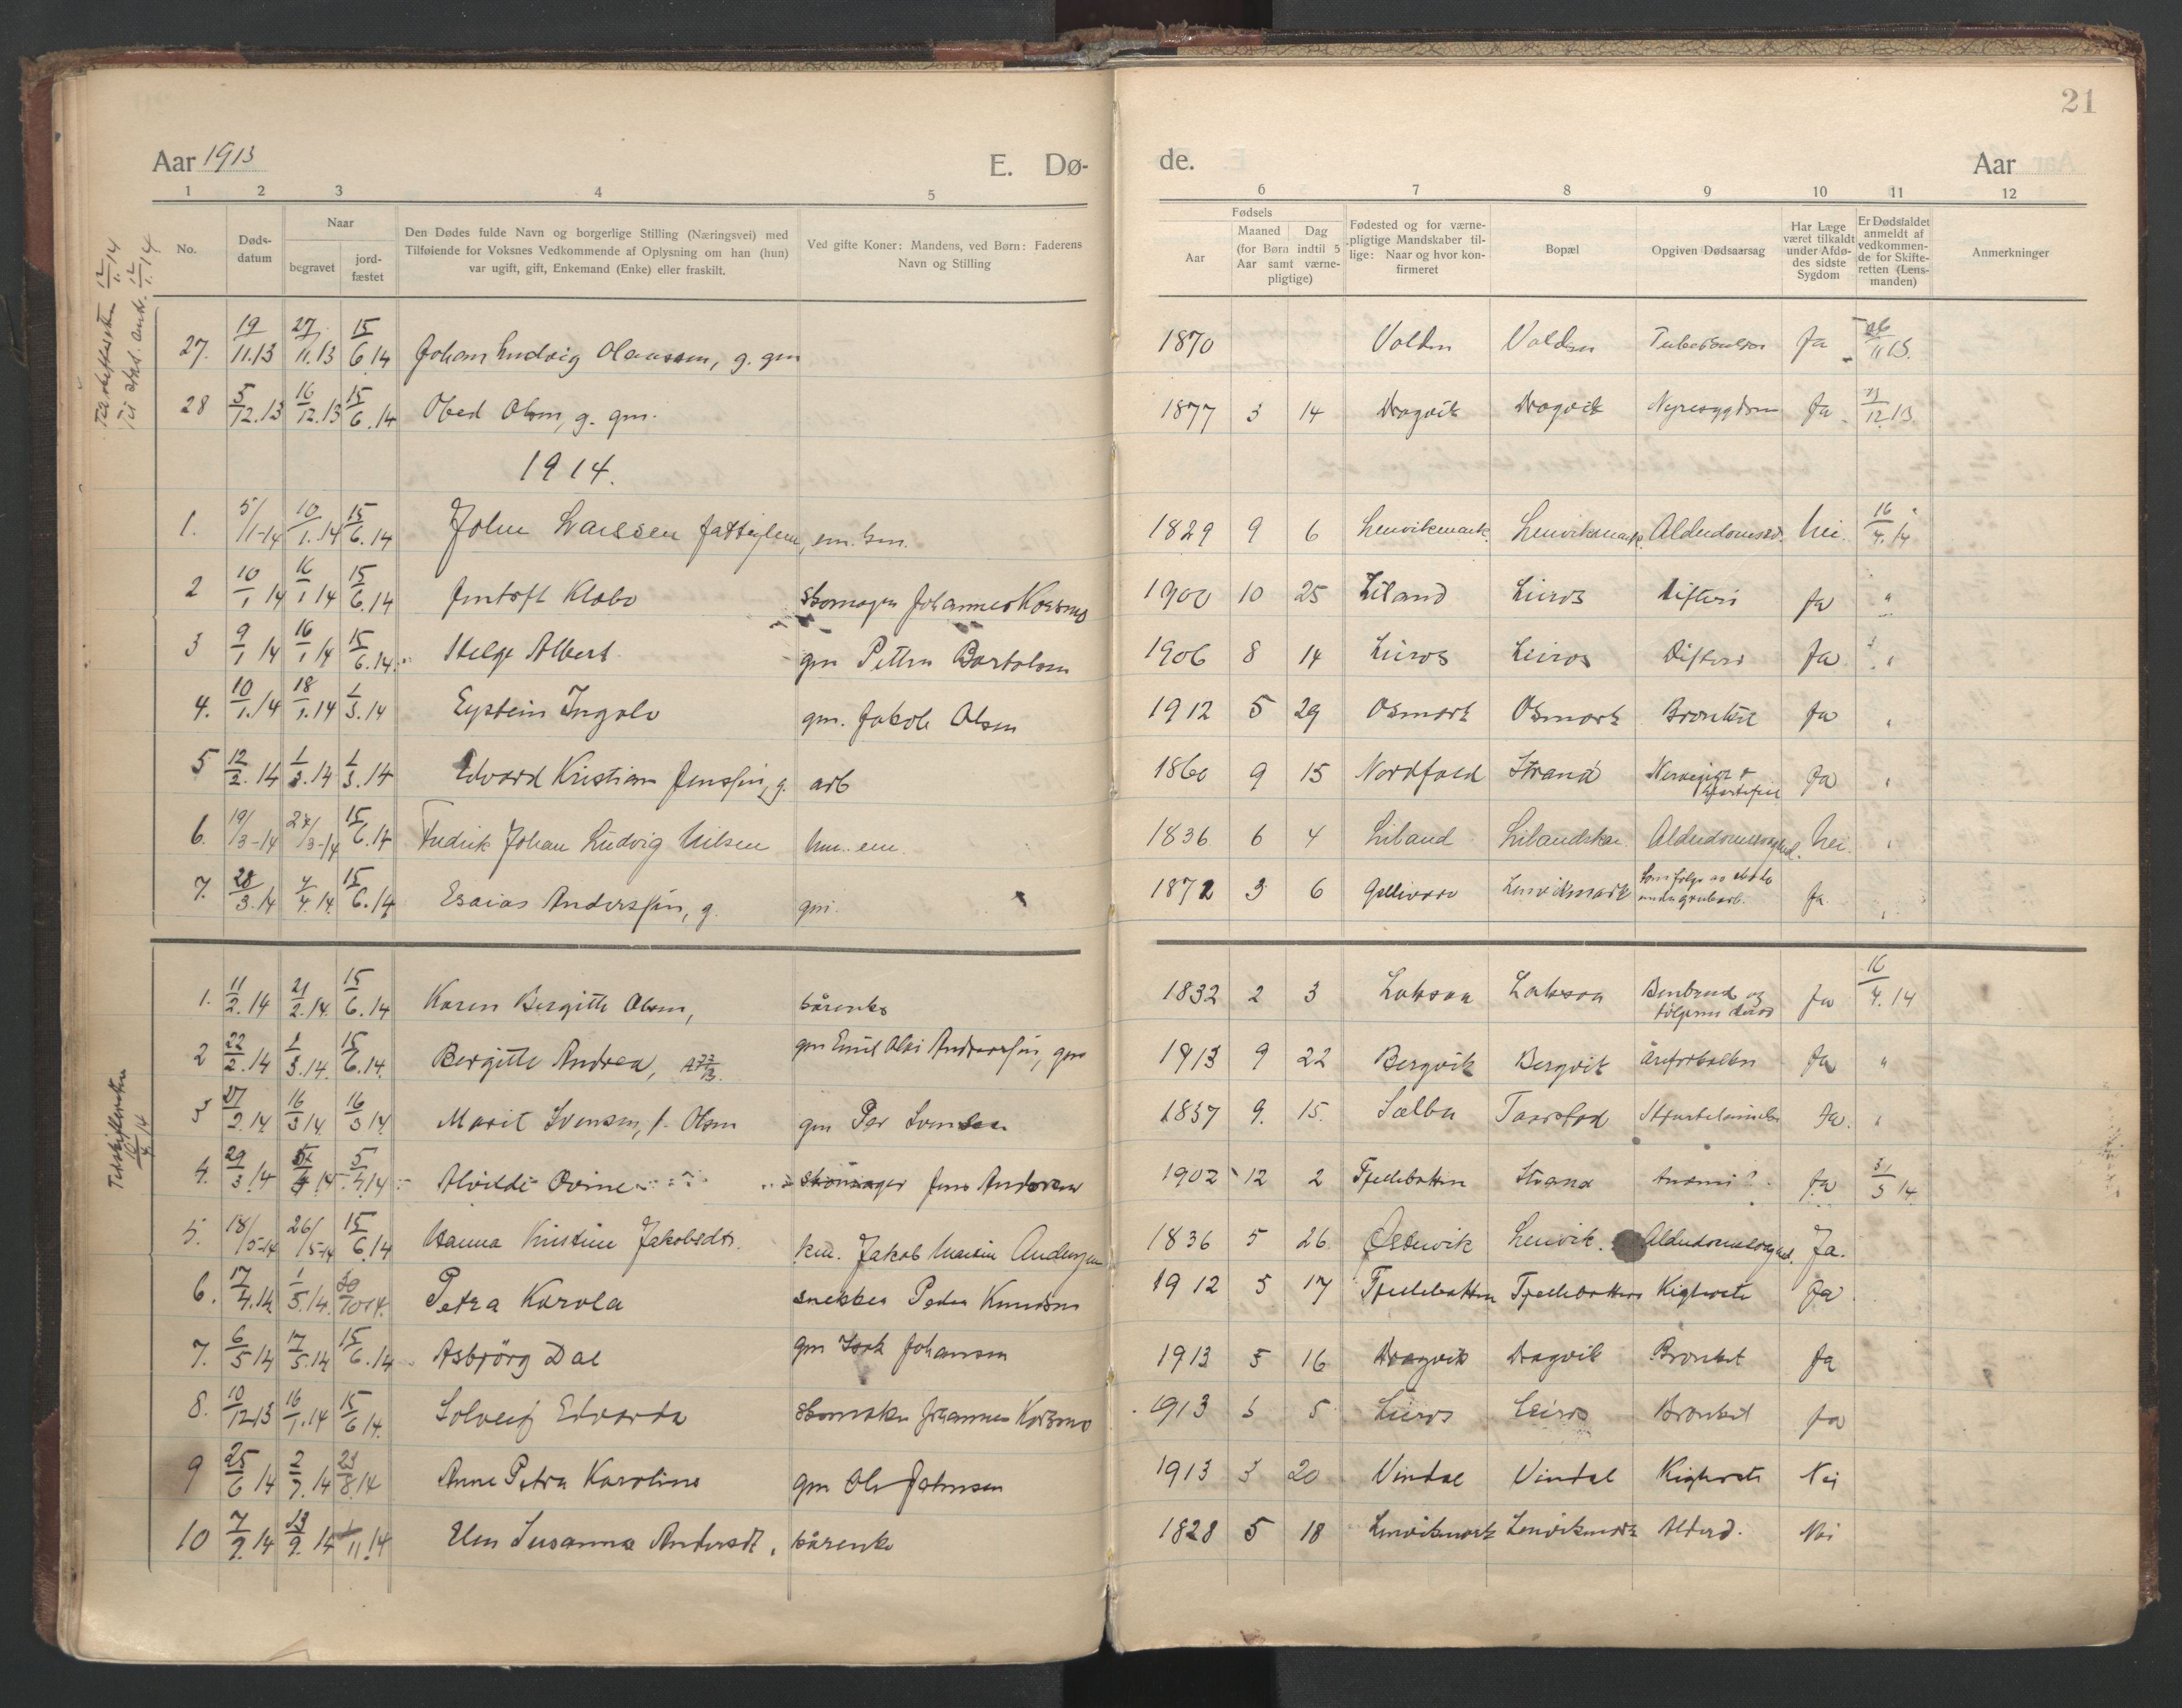 21
Aar 1913 E. Dø-
de. Aar
1 2 3 4 5
6 7 8 9 10 11 12
No.
Døds-
datum
Naar
begravet
jord-
fæstet
Den Dødes fulde Navn og borgerlige Stilling (Næringsvei) med
Tilføiende for Voksnes Vedkommende af Oplysning om han (hun)
var ugift, gift, Enkemand (Enke) eller fraskilt.
Ved gifte Koner: Mandens, ved Børn: Faderens
Navn og Stilling
Fødsels
Aar
Maaned Dag
(for Børn indtil 5
Aar samt værne-
pligtige)
Fødested og for værne-
pligtige Mandskaber til-
lige: Naar og hvor kon-
firmeret
Bopæl
Opgiven Dødsaarsag
Har Læge
været tilkaldt
under Afdø-
des sidste
Sygdom
Er Dødsfaldet
anmeldt af
vedkommen-
de for Skifte-
retten (Lens-
manden)
Anmerkninger
27. 19/11.13 27/11.13 15/6.14 Johan Ludvig Olaussen, g. gm 1870 Volden Volden Tuberkulose Ja 26/11 13.
28 5/12.13 16/12.13 15/6.14 Obed Olsen, g. gm. 1877 3 14 Dragvik Dragvik Nyresygdom Ja 12.13
1914.
1. 5/1-14 10/1.14 15/6.14 John Larssen fattiglem, em. 1829 9 6 Lenvikmark. Lenvikmark. Alderdomssv. Nei. 16/4.14
2 10/1 14 16/1 14 15/6.14 Jentoft Klabo skomager Johannes Korsmo 1900 10 25 Liland Leiros Difteri Ja "
3 9/1 14 16/1 14 15/6.14 Helge Albert gm Petter Bartolsen 1906 8 14 Leiros Leiros Difteri Ja "
4. 10/1.14 18/1.14 1/3.14 Eystein Ingolv gm. Jakob Olsen 1912 5 29 Osmark Osmark Bronkit Ja "
5 12/2.14 1/3.14 1/3.14 Edvard Kristian Jenssen, g. arb 1860 9 15 Nordfold Strand Ja "
6. 19/3-14 27/3-14 15/6.14 Fredrik Johan Ludvig Nilsen em. 1836 6 4 Liland Lilandskar. Alderdomssvaghed. Nei. "
7. 28/3.14 4/4.14. 15/6.14 Esaias Anderssen, g. gm. 1872 3 6 Gellivare Lenvikmark Som følge av under grubearb. Ja "
1. 11/2.14 21/2.14. 15/6.14 Karen Bergitte Olsen, kårenke 1832 2 3 Laksaa Laksaa Benbrud og følgerne derav Ja 16/4.14
2 22/2.14 1/3.14. 15/6.14. Bergitte Andrea, gm Emil Andreassen, gm 1913 9 22 Bergvik Bergvik Ja "
3 27/2.14. 16/3 14. 16/3 14. Marit Svensen, f. Olsen gm Per Svensen 1837 9. 15. Sælbu Taarstad Hjertelammelse Ja. "
4. 29/3.14 5/4 14. 5/4.14 Alvilde Ovine skomager Jens Andersen 1902 12 2 Fjeldbotten Strand Anæmi? Ja 31/3 14.
5. 18/5-14 26/5-14 15/6.14 Hanna Kristine Jakobsdtr. Jakob Martin Anderssen 1836 5 26 Østervik Lenvik. Alderdomssvaghed. Ja.
6. 17/4.14 1/5.14. 30/10 14. Petra Karola snekker Peder Knudsen 1912 5 17 Fjeldbotten Fjeldbotten Kighoste Ja
7. 6/5 14 17/5.14 15/6.14 Asbjörg Dal gm Isak Johansen 1913 5 16 Dragvik Dragvik Bronkit Ja
8. 10/12 13 16/1.14 15/6 14. Solveig Edvarda skomaker Johannes Korsmo 1913 5 5 Leiros Leiros Bronkit Ja
9 25/6 14 2/7.14 23/8.14 Anne Petra Karoline gm Ole Johnsen 1913 3 20 Vindal Vindal Kighoste Nei
10 7/9.14 13/9.14 1/11.14 Elen Susanna Andersdt. kårenke 1828 5 18 Lenvikmark Lenvikmark Alderd. Nei